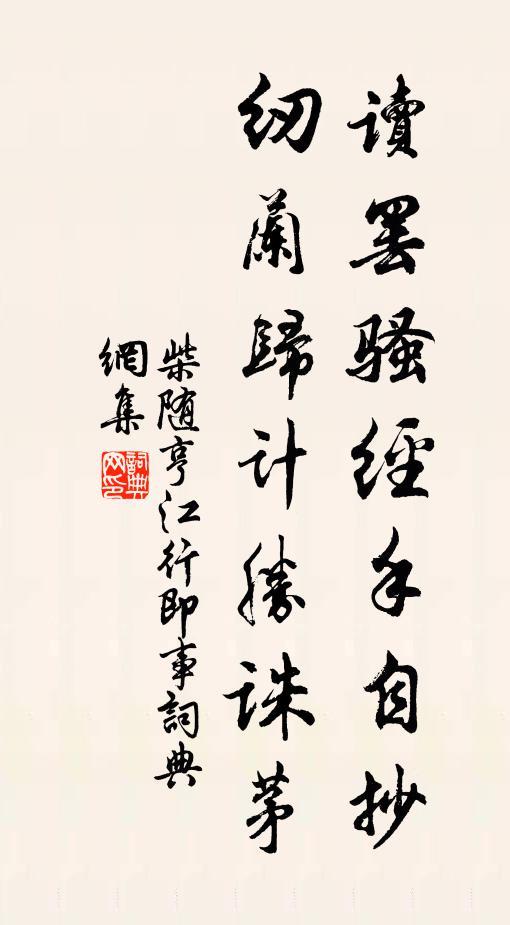 讀罢騷經手自抄
紉蘭歸计勝誅茅
柴随亨江行即事詞典
網集
詞典网印